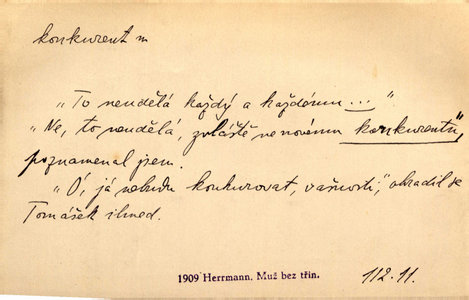 konkurent m
„To neudělá každý a každému ..."
„Ne, to neudělá, zvláště ne novému konkurentu",
poznamenal jsem.
„Ó, já nebudu konkurovat, vašnosti," ohradil se
Tomášek ihned.
1909 Herrmann. Muž bez třin.
112.11.